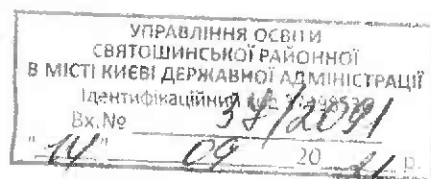 УПРАВЛІННЯ ОСВІТИ
СВЯТОШИНСЬКОЇ РАЙОННОЇ
В МІСТІ КИЄВІ ДЕРЖАВНОЇ АДМІНІСТРАЦІЇ
Ідентифікаційний
Вх.№ 38/2091
"14" 09 2021 р.